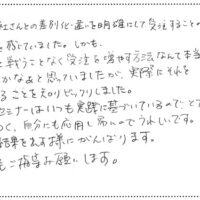 社さんとの差別化・違いを明確にして受注することの
を感じていました。しかも、
と戦うことなく受注を増やす方法なんて本当
かなぁと思っていましたが、実際にそれを
ることを知りビックリしました。
セミナーはいつも実践に基づいているのでとて
く、自分にも応用し易いのでうれしいです。
結果を出せる様にがんばります。
もご指導お願いします。